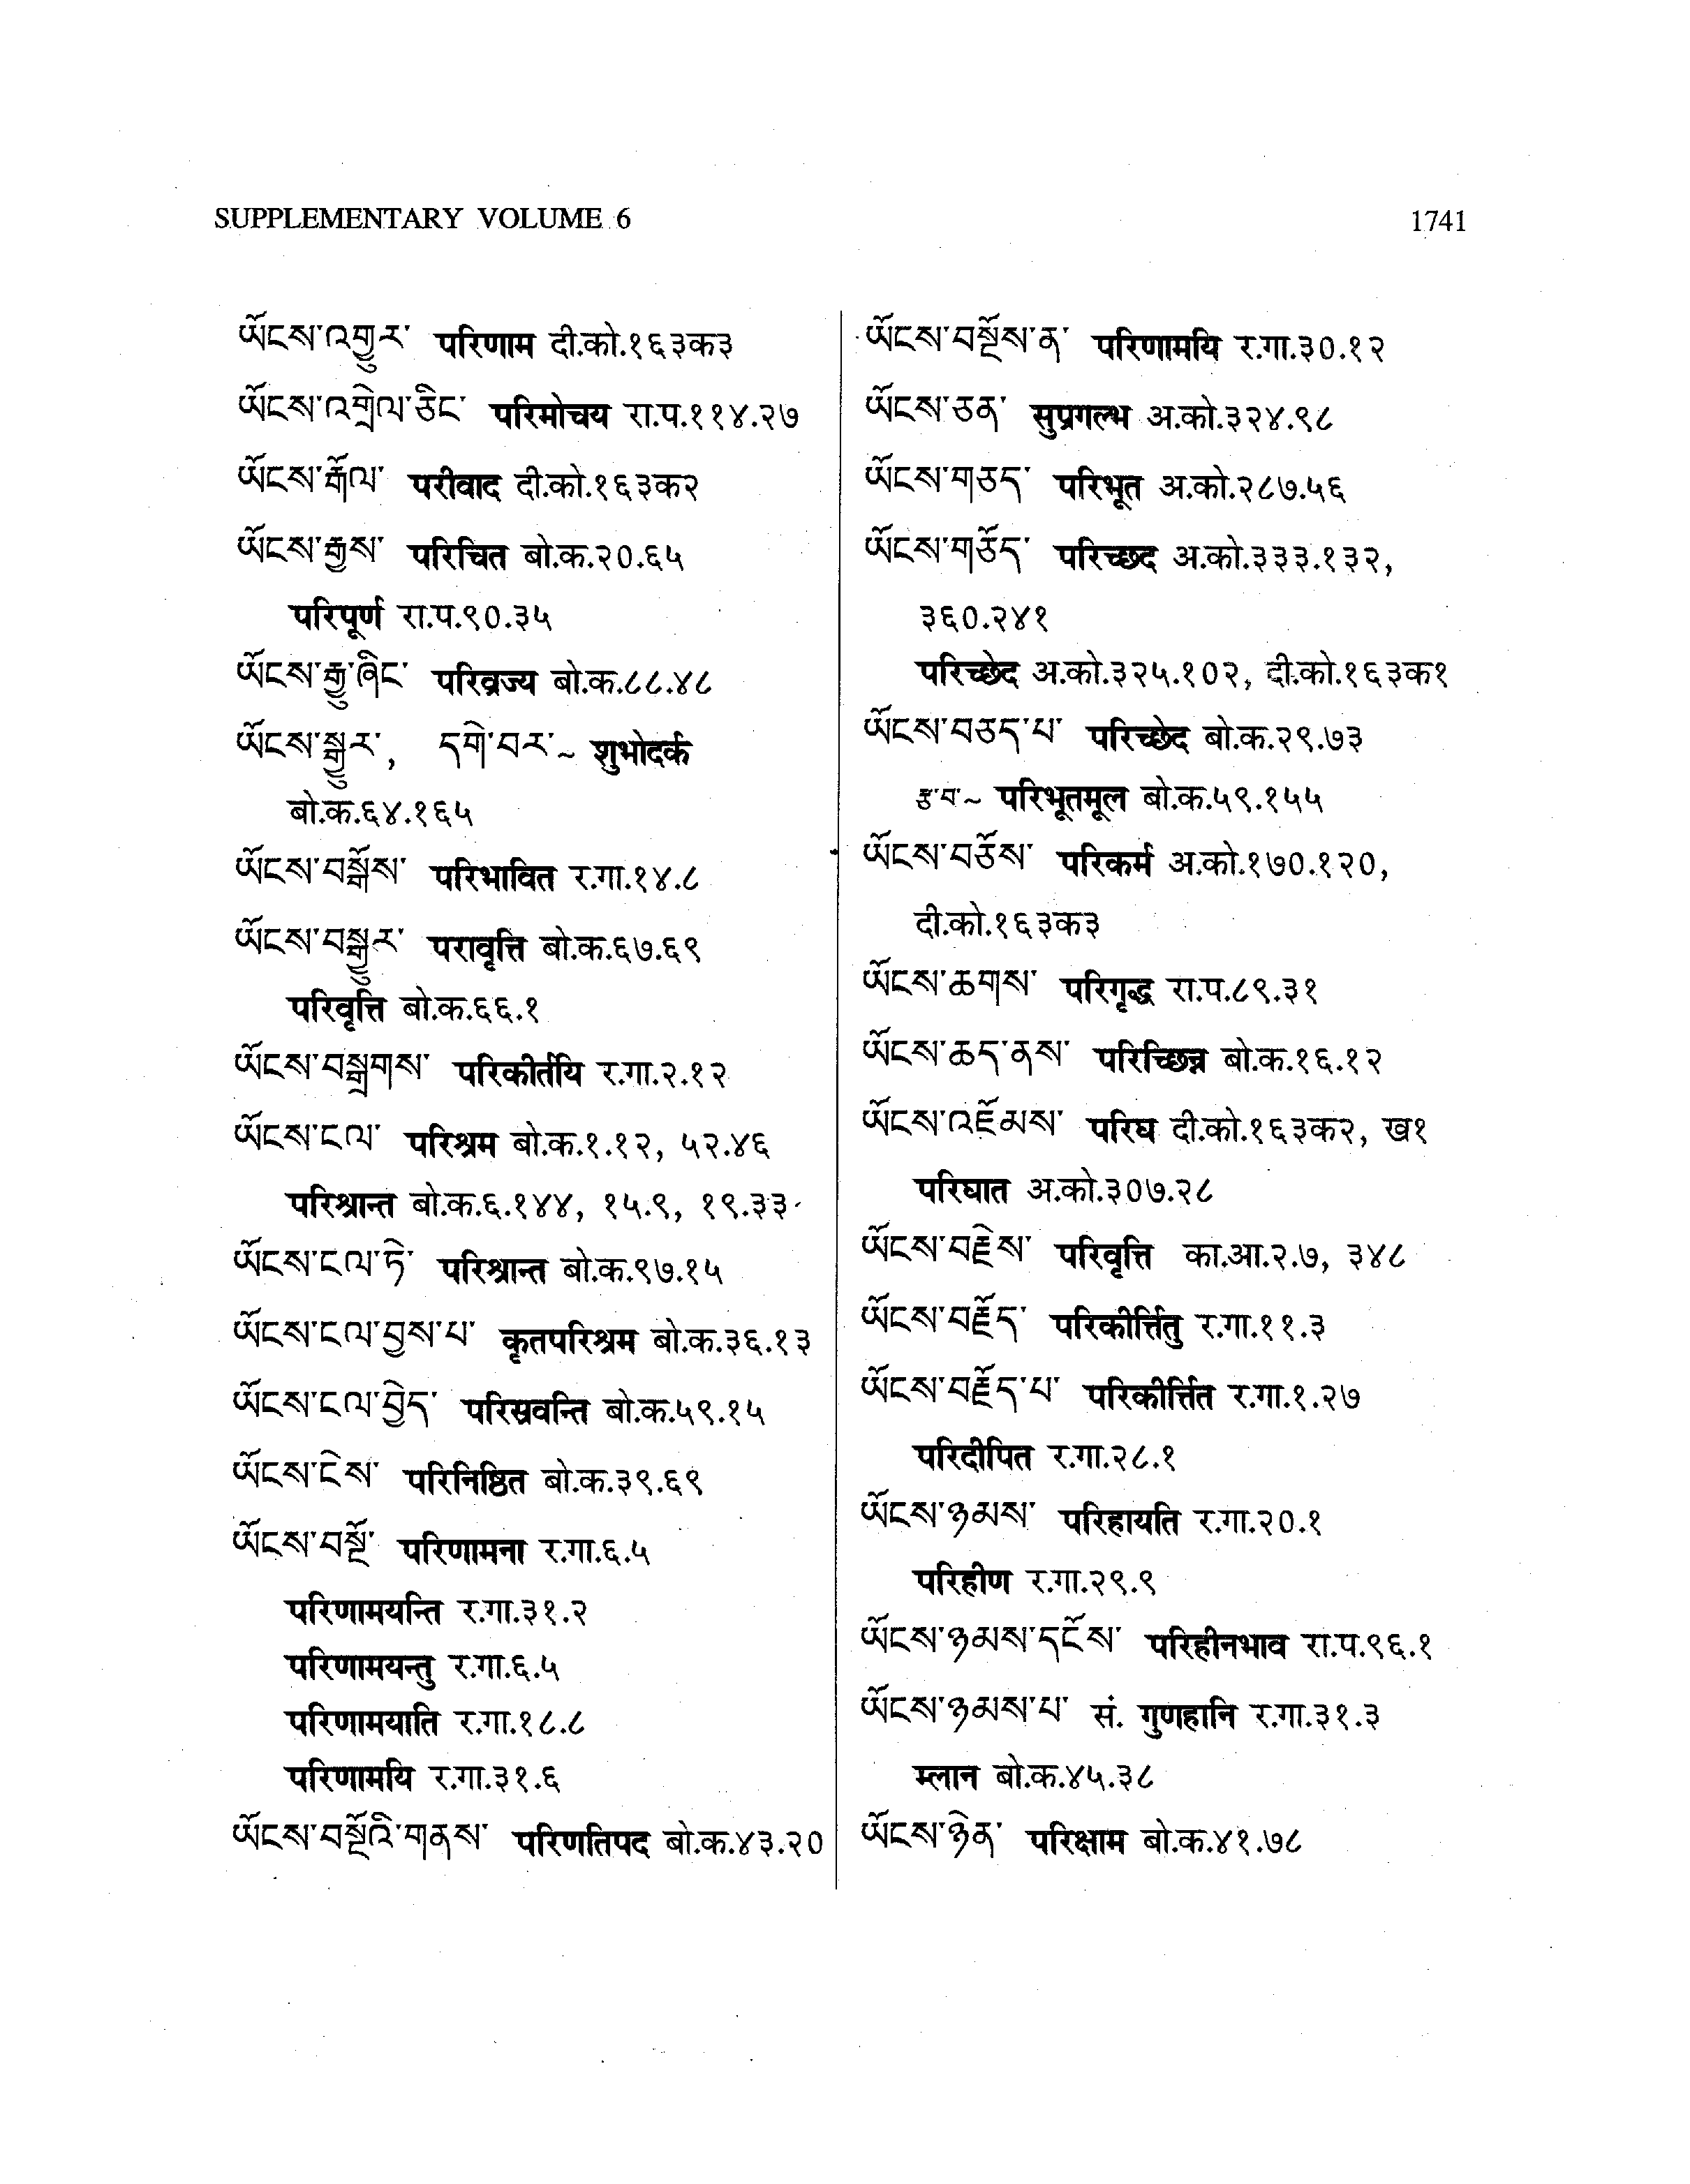 SUPPLEMENTARY VOLUME 6
1741
ཡོངས་འགྱུར་ परिणाम दी.को.१६३क३
ཡོངས་འགྲེལ་ཅིང་ परिमोचय रा.प.११४.२७
ཡོངས་རྒོལ་ परीवाद दी.को.१६३क२
ཡོངས་རྒྱས་ परिचित बो.क.२०.६५
परिपूर्ण रा.प.९०.३५
ཡོངས་རྒྱུ་ཞིང་ परिव्रज्य बो.क.८८.४८
ཡོངས་སྒྱུར་, དགེ་བར་~ शुभोदर्क
बो.क.६४.१६५
ཡོངས་བསྒོས་ परिभावित र.गा.१४.८
ཡོངས་བསྒྱུར་ परावृत्ति बो.क.६७.६९
परिवृत्ति बो.क.६६.१
ཡོངས་བསྒྲགས་ परिकीर्तयि र.गा.२.१२
ཡོངས་ངལ་ परिश्रम बो.क.१.१२, ५२.४६
परिश्रान्त बो.क.६.१४४, १५.९, १९.३३
ཡོངས་ངལ་ཏེ་ परिश्रान्त बो.क.९७.१५
ཡོངས་ངལ་བྱས་པ་ कृतपरिश्रम बो.क.३६.१३
ཡོངས་ངལ་བྱེད་ परिस्रवन्ति बो.क.५९.१५
ཡོངས་ངེས་ परिनिष्ठित बो.क.३९.६९
ཡོངས་བསྔོ་ परिणामना र.गा.६.५
परिणामयन्ति र.गा.३१.२
परिणामयन्तु र.गा.६.५
परिणामयाति र.गा.१८.८
परिणामयि र.गा.३१.६
ཡོངས་བསྔོའི་གནས་ परिणतिपद बो.क.४३.२०
ཡོངས་བསྔོས་ན་ परिणामयि र.गा.३०.१२
ཡོངས་ཅན་ सुप्रगल्भ अ.को.३२४.९८
ཡོངས་གཅད་ परिभूत अ.को.२८७.५६
ཡོངས་གཅོད་ परिच्छद अ.को.३३३.१३२,
३६०.२४१
परिच्छेद अ.को.३२५.१०२, दी.को.१६३क१
ཡོངས་བཅད་པ་ परिच्छेद बो.क.२९.७३
རྩ་བ་~ परिभूतमूल बो.क.५९.१५५
ཡོངས་བཅོས་ परिकर्म अ.को.१७०.१२०,
दी.को.१६३क३
ཡོངས་ཆགས་ परिगृद्ध रा.प.८९.३१
ཡོངས་ཆད་ནས་ परिच्छिन्न बो.क.१६.१२
ཡོངས་འཇོམས་ परिघ दी.को.१६३क२, ख१
परिघात अ.को.३०७.२८
ཡོངས་བརྗེས་ परिवृत्ति का.आ.२.७, ३४८
ཡོངས་བརྗོད་ परिकीर्त्तितु र.गा.११.३
ཡོངས་བརྗོད་པ་ परिकीर्त्तित र.गा.१.२७
परिदीपित र.गा.२८.१
ཡོངས་ཉམས་ परिहायति र.गा.२०.१
परिहीण र.गा.२९.९
ཡོངས་ཉམས་དངོས་ परिहीनभाव रा.प.९६.१
ཡོངས་ཉམས་པ་ सं. गुणहानि र.गा.३१.३
म्लान बो.क.४५.३८
ཡོངས་ཉེན་ परिक्षाम बो.क.४१.७८